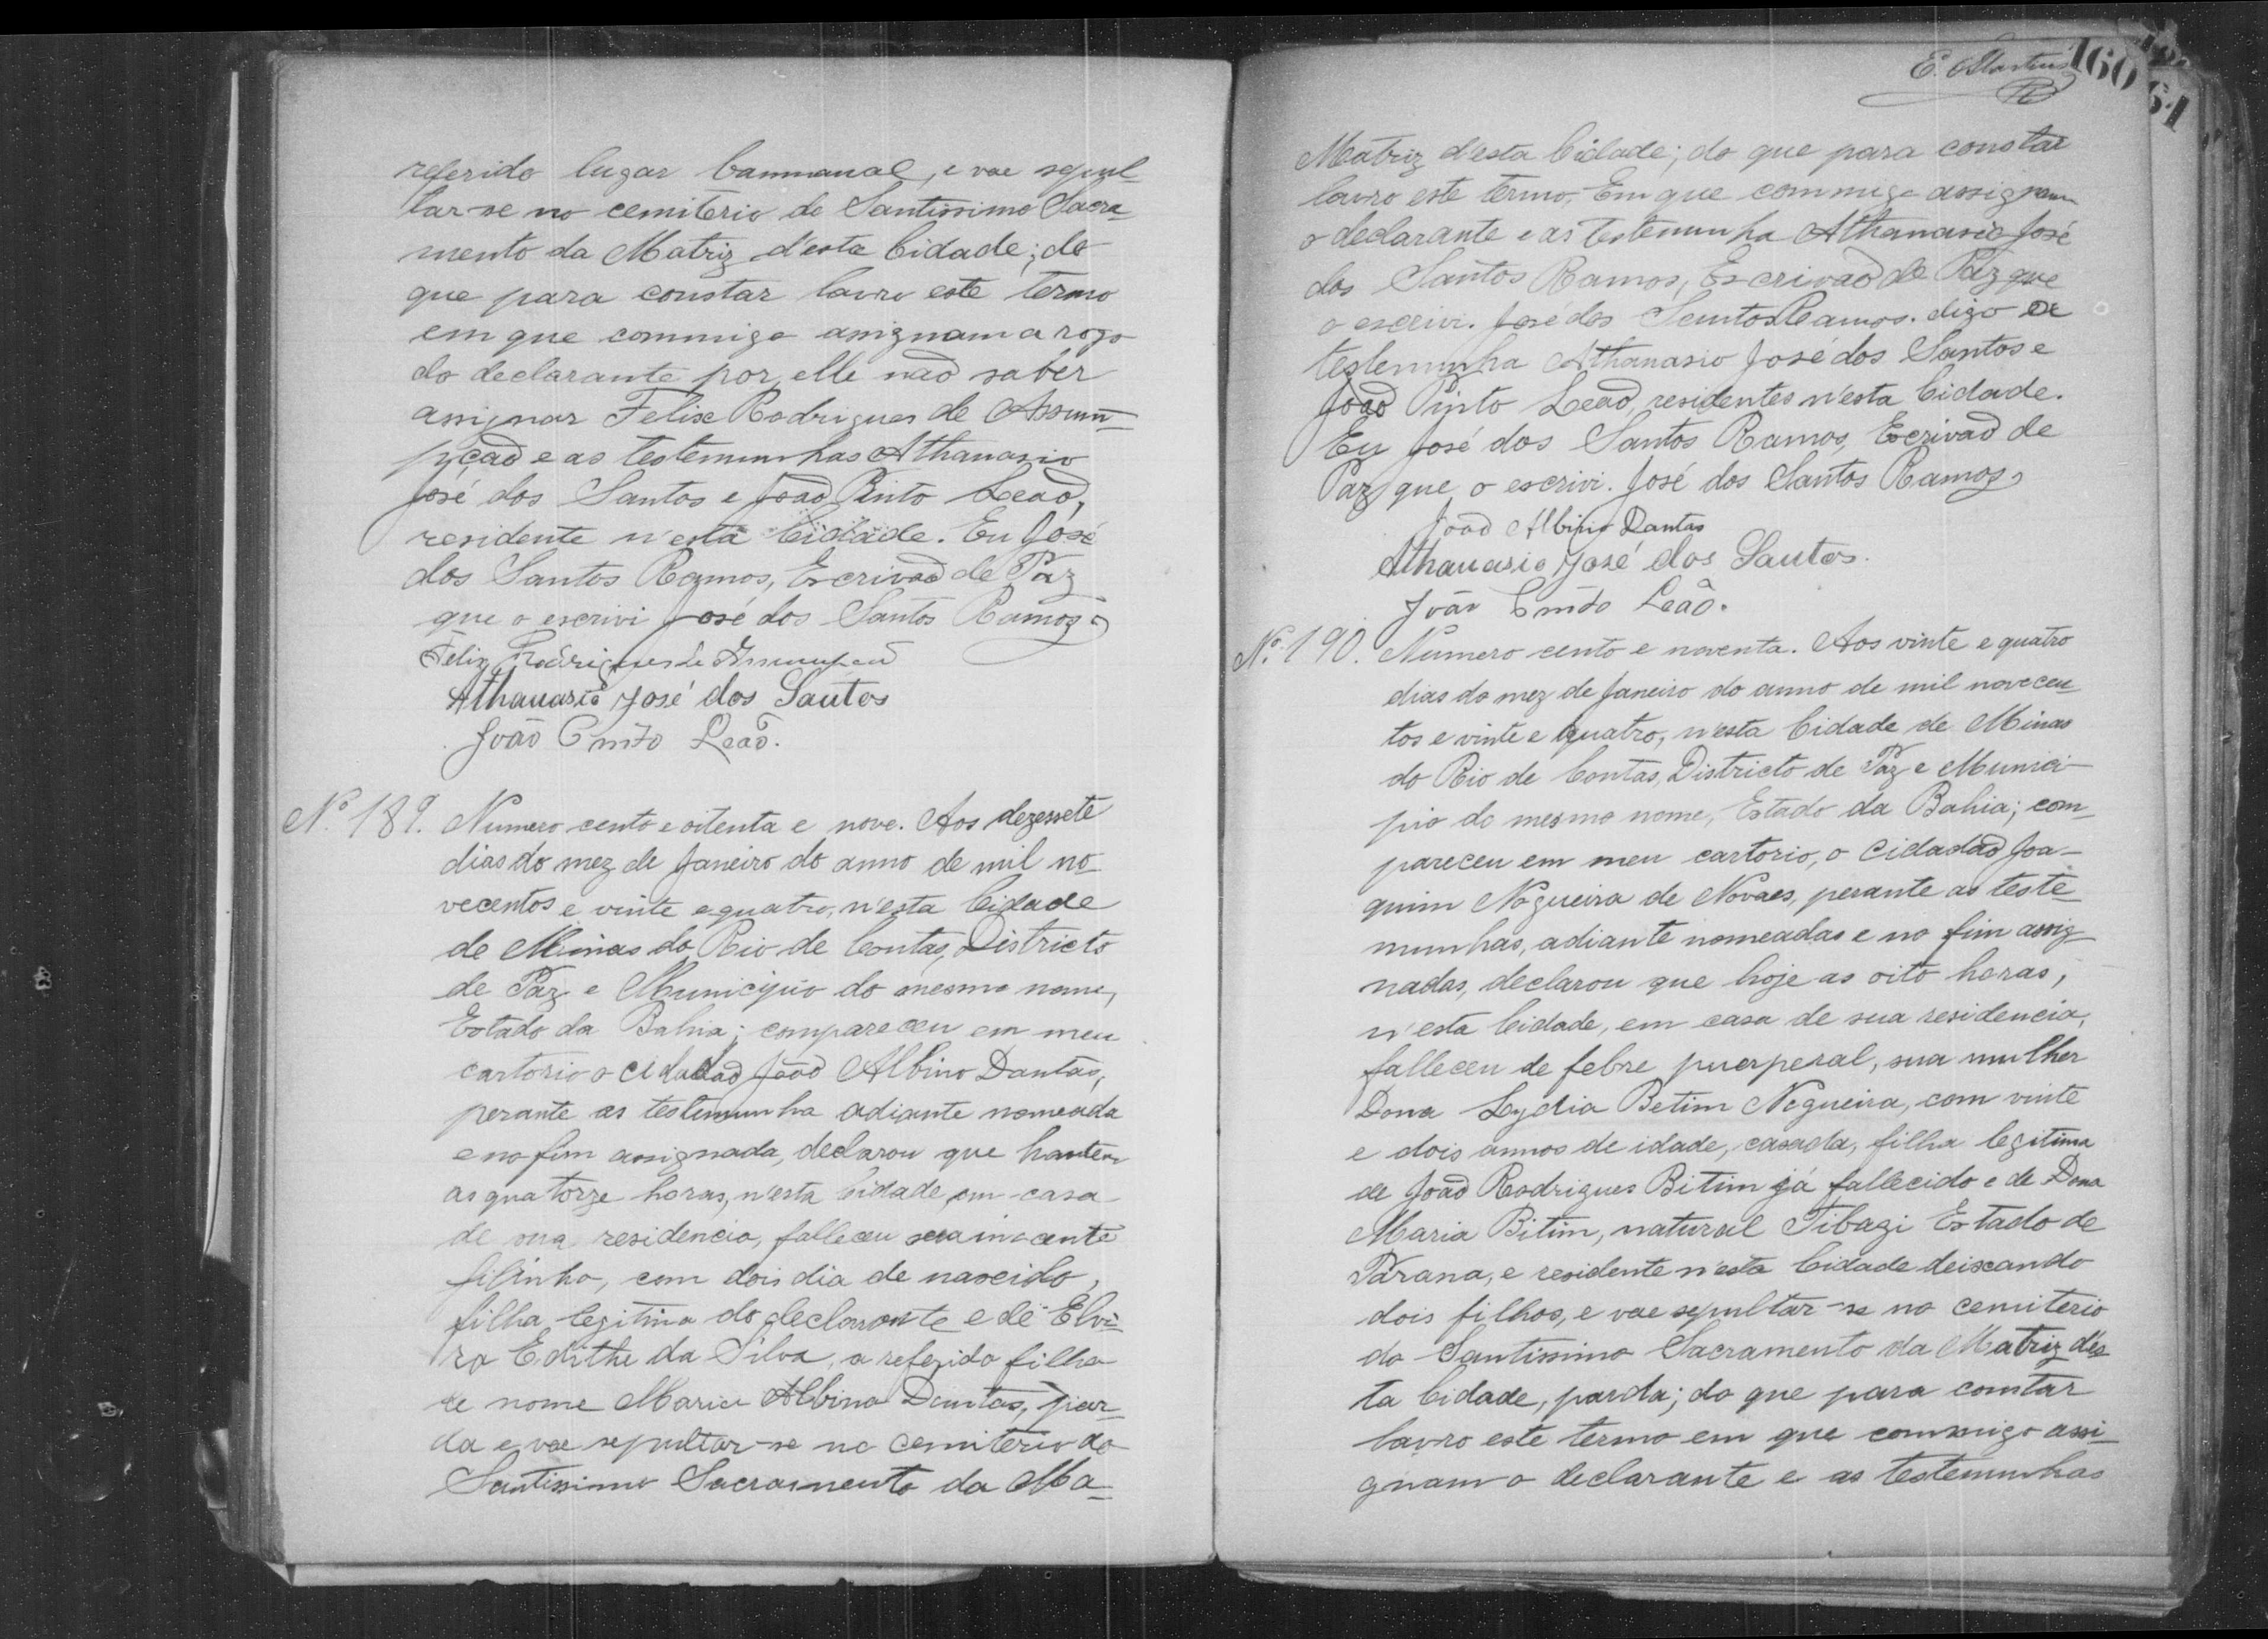 referido lugar Cammanal, e vae sepul-
tar-se no cemiterio do Santissimo Sacra-
mento da Matriz d'esta Cidade; do
que para constar lavro este termo
em que commigo assignam a rogo
do declarante por elle não saber
assignar Felix Rodrigues de Assum-
pção e as testemunhas Athanasio
José dos Santos e João Pinto Leão,
residente n'esta Cidade. Eu José
dos Santos Ramos, Escrivão de Paz
que o escrivi José dos Santos Ramos.
Felix Rodrigues de Assumpção
Athanasio José dos Santos
João Pinto Leão.
Nº 189. Numero cento e oitenta e nove. Aos dezessete
dias do mez de Janeiro do anno de mil no-
vecentos e vinte e quatro, n'esta Cidade
de Minas do Rio de Contas, Districto
de Paz e Municipio do mesmo nome,
Estado da Bahia; compareceu em meu
cartorio o cidadão João Albino Dantas,
perante as testimunha adiante nomeada
e no fim assignada, declarou que hontem
as quatorze horas, n'esta Cidade, em casa
de sua residencia, falleceu sua inocente
filinha, com dois dia de nascido,
filha legitima do declarante e de Elvi-
ra Edithe da Silva, a referida filha
de nome Maria Albina Dantas, par-
da e vae sepultar-se no cemiterio do
Santissimo Sacramento da Ma-
E. Martins
160
61
Matriz d'esta Cidade; do que para constar
lavro este termo, Em que commigo assignam
o declarante e as testemunha Athanasio José
dos Santos Ramos, Escrivão de Paz que
o escrivi. José dos Santos Ramos. digo as
testemunha Athanasio José dos Santos e
João Pinto Leão, residentes n'esta Cidade.
Eu José dos Santos Ramos, Escrivão de
Paz que o escrivi. José dos Santos Ramos
João Albino Dantas
Athanasio José dos Santos.
João Pinto Leão.
Nº 190. Numero cento e noventa. Aos vinte e quatro
dias do mez de Janeiro do anno de mil novecen-
tos e vinte e quatro, n'esta Cidade de Minas
do Rio de Contas, Districto de Paz e Munici-
pio do mesmo nome, Estado da Bahia; com-
pareceu em meu cartorio, o cidadão Joa-
quim Nogueira de Novaes, perante as teste-
munhas, adiante nomeadas e no fim assig-
nadas, declarou que hoje as oito horas,
n'esta Cidade, em casa de sua residencia,
falleceu de febre puerperal, sua mulher
Dona Lydia Betim Nogueira, com vinte
e dois annos de idade, casada, filha legitima
de João Rodrigues Bitim já fallecido e de Dona
Maria Bitim, natural Tibagi Estado de
Parana, e residente n'esta Cidade deixando
dois filhos, e vae sepultar-se no cemiterio
do Santissimo Sacramento da Matriz d'es-
ta Cidade, parda; do que para constar
lavro este termo em que commigo assi-
gnam o declarante e as testemunhas